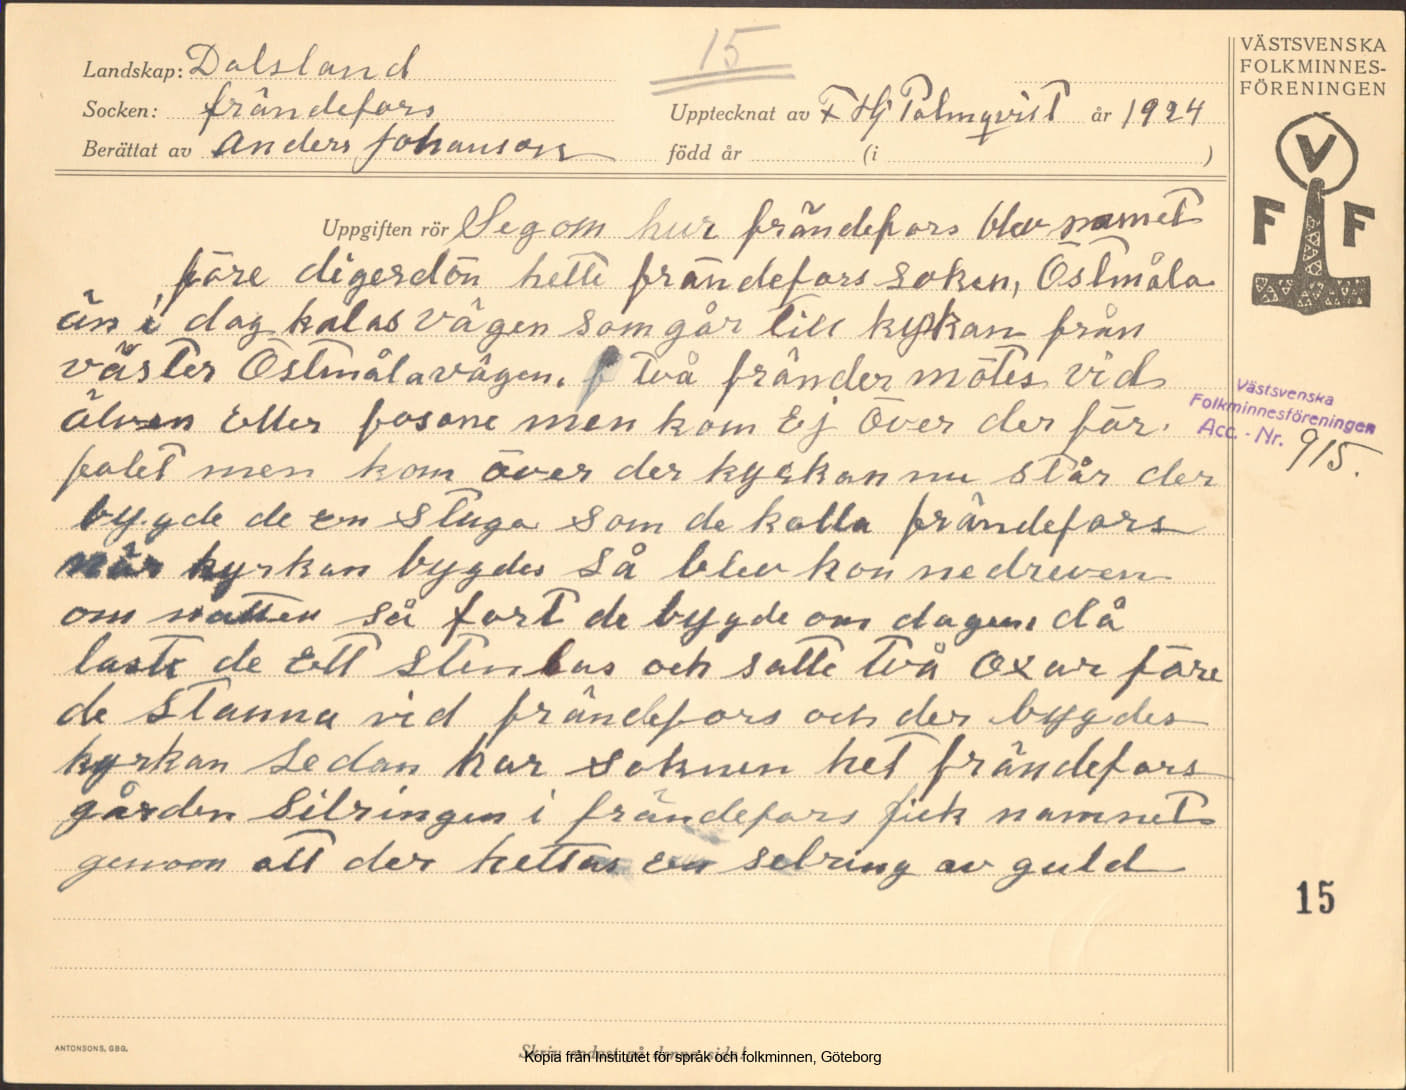 15
Landskap: Dalsland
Socken: frändefors
Berättat av Anders Johanson
Upptecknat av F Hj Palmqvist år 1924
född år (i )
VÄSTSVENSKA
FOLKMINNES-
FÖRENINGEN
V
F F
Uppgiften rör Segom hur frändefors blev namnet
före digerdön hette frändefors soken, Östmåla
än i dag kalas vägen som går till kyrkan från
väster Östmålavägen. två fränder mötes vid
älven Eller fosane men kom Ej över der för
falet men kom över der kyrkan nu står der
bygde de en stuga som de kalla frändefors
när kyrkan bygdes så blev hon nedreven
om natten så fort de bygde om dagen, då
laste de Ett stenlas och satte två oxar före
de stanna vid frändefors och der bygdes
kyrkan sedan har soknen het frändefors
gården Silringen i frändefors fick namnet
genom att der hettas en selring av guld
Västsvenska
Folkminnesföreningen
Acc. - Nr. 915.
15
ANTONSONS, GBG.
Skriv endast på denna sida!
Kopia från Institutet för språk och folkminnen, Göteborg